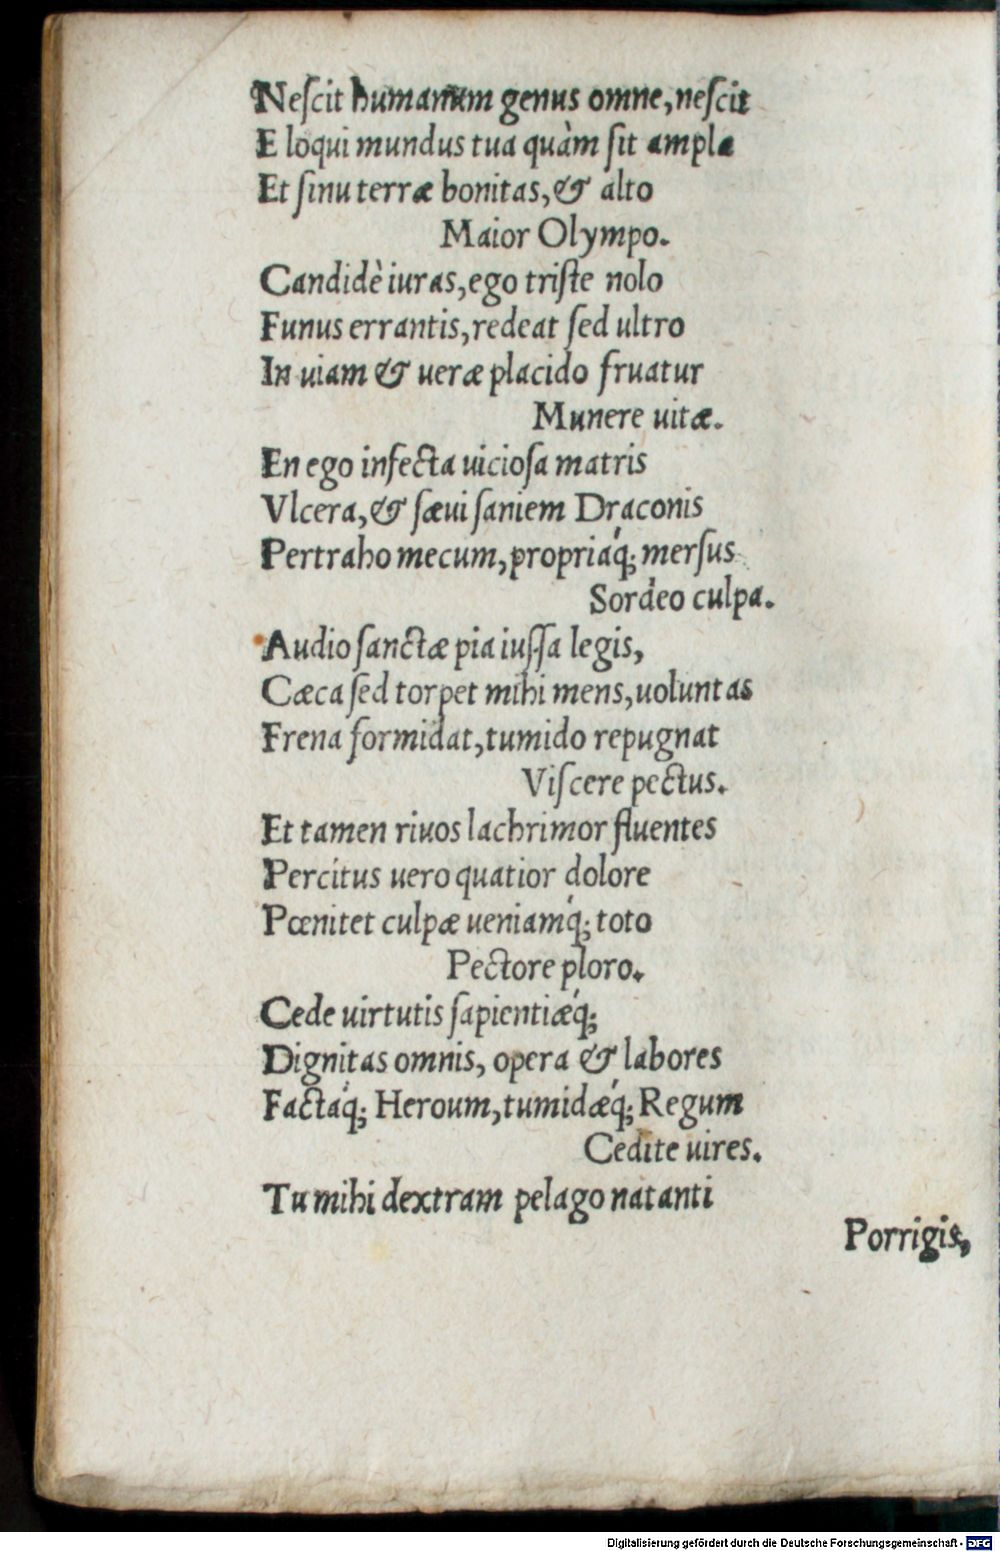 Neſcit humanum genus omne, neſcit
E loqui mundus tua quàm ſit ampla
Et ſinu terræ bonitas, & alto
Maior Olympo.
Candidè iuras, ego triſte nolo
Funus errantis, redeat ſed ultro
In uiam & ueræ placido fruatur
Munere uitæ.
En ego infecta uicioſa matris
Vlcera, & ſæui ſaniem Draconis
Pertraho mecum, propriáq; merſus
Sordeo culpa.
Audio ſanctæ pia iuſſa legis,
Cæca ſed torpet mihi mens, uoluntas
Frena formidat, tumido repugnat
Viſcere pectus.
Et tamen riuos lachrimor fluentes
Percitus uero quatior dolore
Pœnitet culpæ ueniamq́; toto
Pectore ploro.
Cede uirtutis ſapientiæq́;
Dignitas omnis, opera & labores
Factáq; Heroum, tumidæq́; Regum
Cedite uires.
Tu mihi dextram pelago natanti
Porrigis,
Digitalisierung gefördert durch die Deutsche Forschungsgemeinschaft - DFG